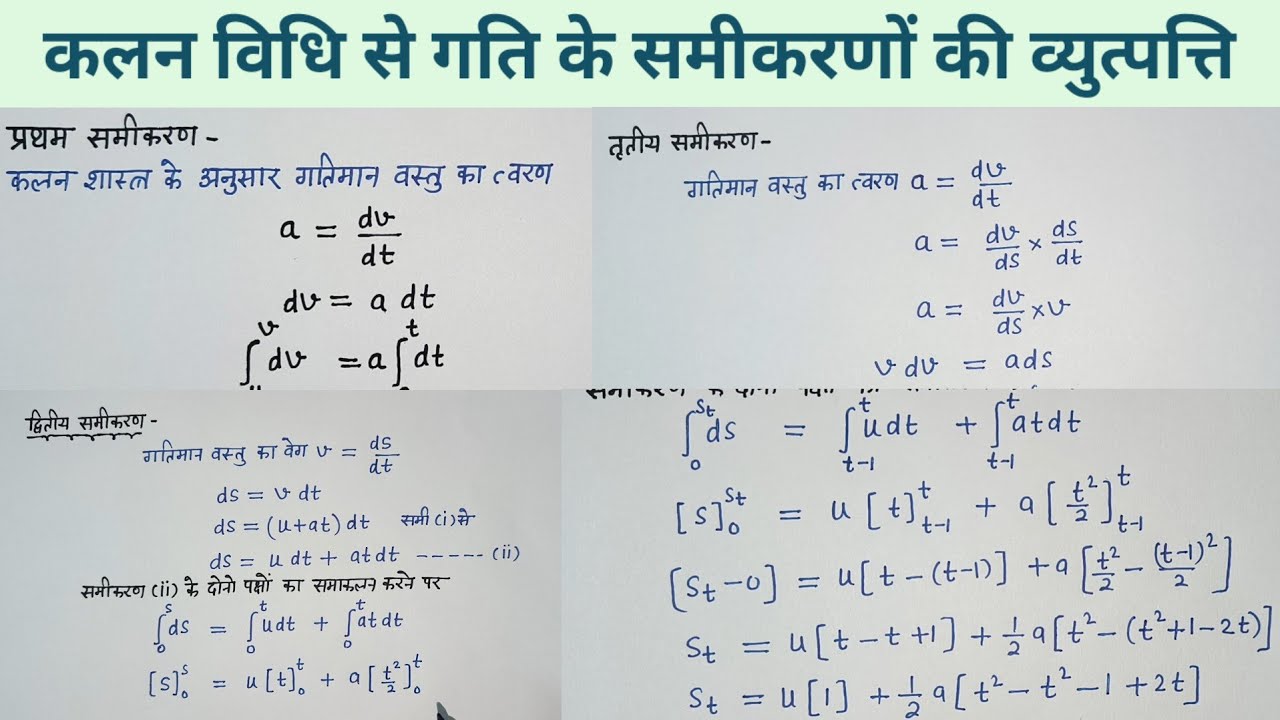 कलन विधि से गति के समीकरणों की व्युत्पत्ति
प्रथम समीकरण -
कलन शास्त्र के अनुसार गतिमान वस्तु का त्वरण
a = dv/dt
dv = a dt
∫ᵛ dv = a ∫ᵗ dt
तृतीय समीकरण -
गतिमान वस्तु का त्वरण a = dv/dt
a = dv/ds × ds/dt
a = dv/ds × v
v dv = ads
द्वितीय समीकरण -
गतिमान वस्तु का वेग v = ds/dt
ds = v dt
ds = (u+at) dt समी (i) से
ds = u dt + at dt ----- (ii)
समीकरण (ii) के दोनो पक्षों का समाकलन करने पर
∫₀ˢ ds = ∫₀ᵗ u dt + ∫₀ᵗ at dt
[s]₀ˢ = u [t]₀ᵗ + a [t²/2]₀ᵗ
∫₀^{St} ds = ∫_{t-1}^{t} u dt + ∫_{t-1}^{t} at dt
[s]₀^{St} = u [t]_{t-1}^{t} + a [t²/2]_{t-1}^{t}
[St - 0] = u[t - (t-1)] + a[t²/2 - (t-1)²/2]
St = u[t - t + 1] + 1/2 a[t² - (t² + 1 - 2t)]
St = u[1] + 1/2 a[t² - t² - 1 + 2t]